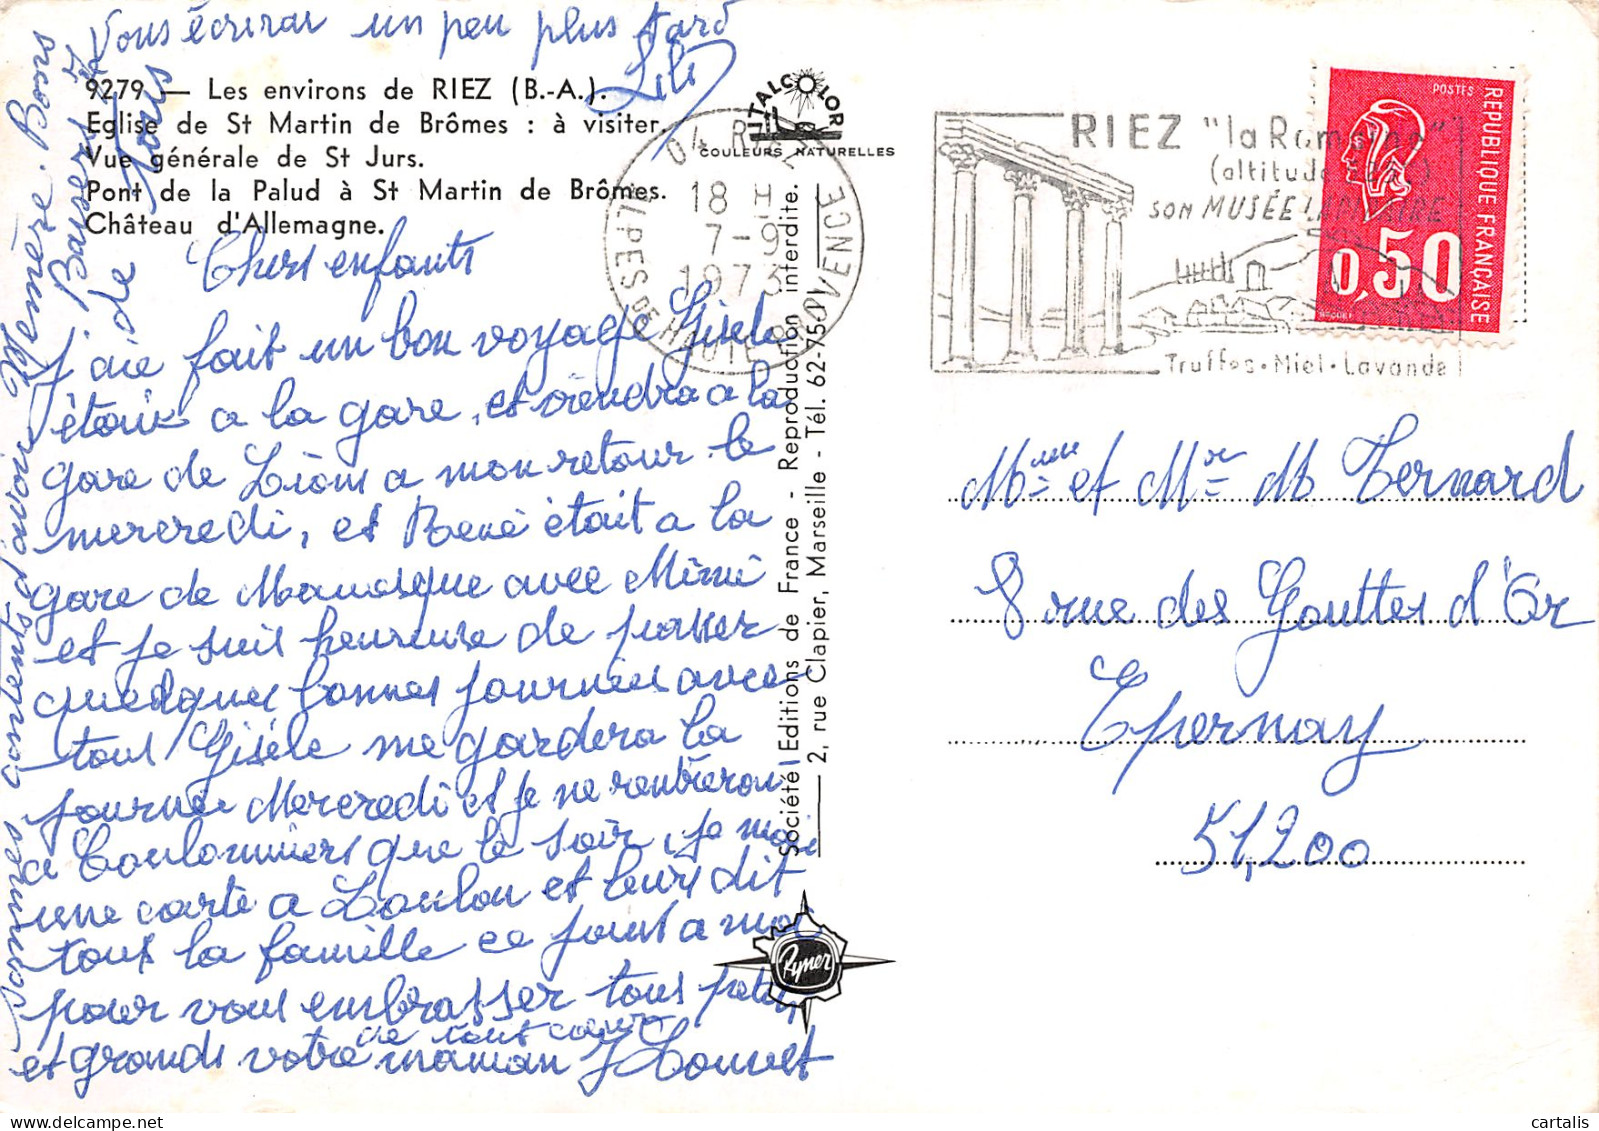 Vous écrirai un peu plus tard
Lili
9279 — Les environs de RIEZ (B.-A.).
Eglise de St Martin de Brômes : à visiter.
Vue générale de St Jurs.
Pont de la Palud à St Martin de Brômes.
Château d'Allemagne.
Chers enfants
j'aie fait un bon voyage Gisele
étais a la gare, et viendra a la
gare de Lions a mon retour le
mercredi, et René était a la
gare de Manosque avec Mimi
et je suis heureuse de passer
quelques bonnes journées avec
tous Gisèle me gardera la
journée Mercredi et je ne rentrerai
a Coulommiers que le soir, je
une carte a Loulou et leurs dit
tous la famille ce joint a moi
pour vous embrasser tous petits
et grands votre maman J Louvet
de tout coeur
Sommes
Bons
Baisers
de
Tous
ITALCOLOR
COULEURS NATURELLES
04 RIEZ
18 H
7-9
1973
ALPES DE HAUTE PROVENCE
RIEZ "la Romaine"
(altitude
SON MUSÉE LAPIDAIRE
Truffes • Miel • Lavande
POSTES
REPUBLIQUE FRANÇAISE
0,50
BEQUET
Société Editions de France - Reproduction interdite.
2, rue Clapier, Marseille - Tél. 62-75.01
Ryner
Mme et Mr M Ternard
8 rue des Gouttes d'Or
Epernay
51,200
cartalis